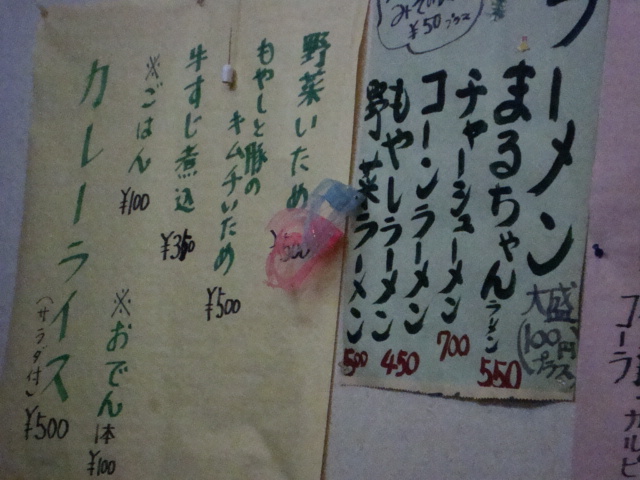 ラーメン
大盛
(100円
プラス)
まるちゃん
ラーメン
550
チャーシューメン
700
コーンラーメン
もやしラーメン
450
野菜ラーメン
500
¥50プラス
野菜いため
¥500
もやしと豚の
キムチいため
¥500
牛すじ煮込
¥350
※ごはん
¥100
※おでん
1本
¥100
カレーライス
(サラダ付)
¥500
コーラ
カルピ